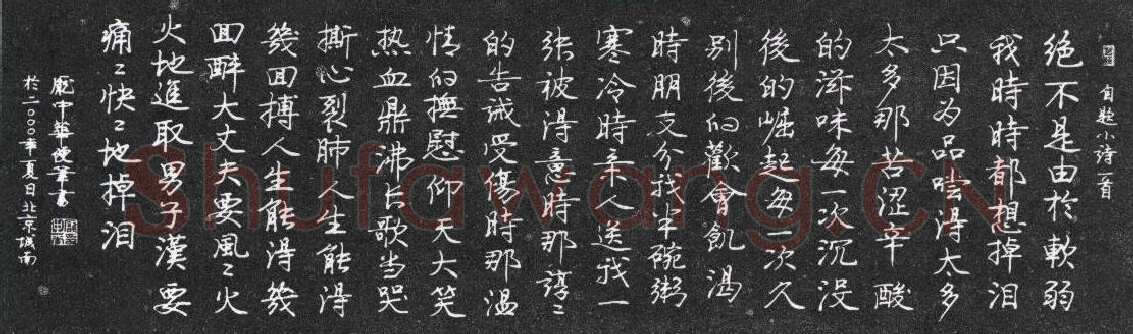 自題小诗一首
絕不是由於軟弱
我時時都想掉泪
只因为品嚐得太多
太多那苦涩辛酸
的滋味每一次沉没
後的崛起每一次久
别後的歡會飢渴
時朋友分我半碗粥
寒冷時亲人送我一
张被得意時那諄〻
的告诫受傷時那温
情的撫慰仰天大笑
热血鼎沸长歌当哭
撕心裂肺人生能得
幾回搏人生能得幾
回醉大丈夫要風〻火
火地進取男子漢要
痛〻快〻地掉泪
龐中華硬筆書
於二〇〇〇年夏日北京城南
Shufawang.CN